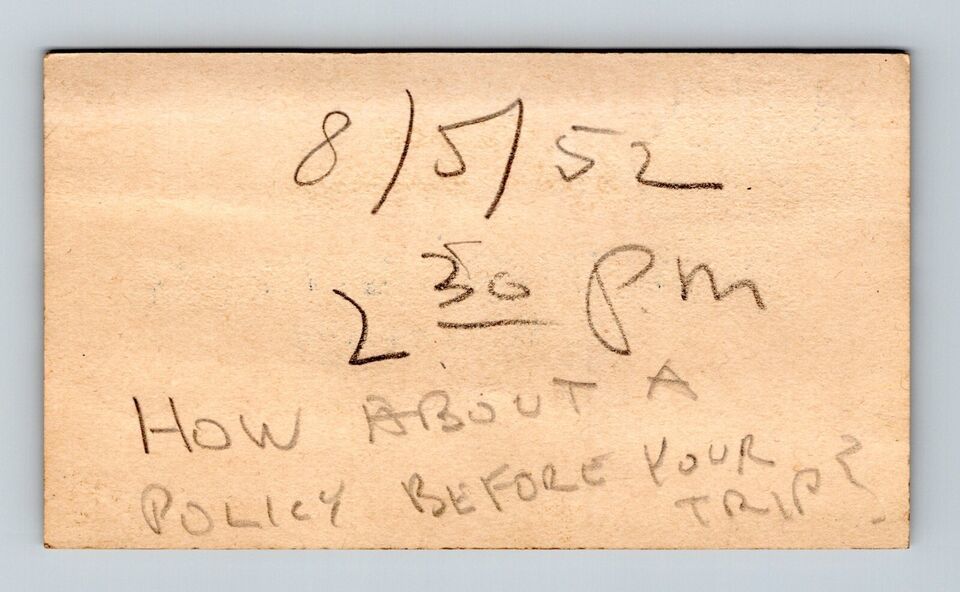 8/5/52
2 30 P.M
HOW ABOUT A
POLICY BEFORE YOUR
TRIP?